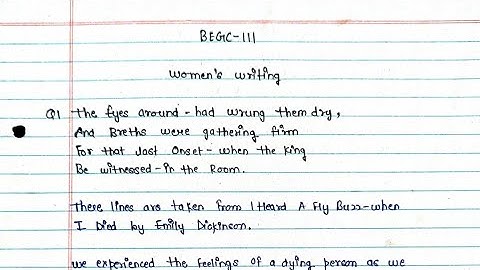 BEGC-111
Women's writing
Q1 The Eyes around - had wrung them dry,
And Breths were gathering firm
For that last Onset - when the King
Be witnessed - in the Room.
There lines are taken from I Heard A Fly Buzz - when
I Died by Emily Dickinson.
we experienced the feelings of a dying person as we